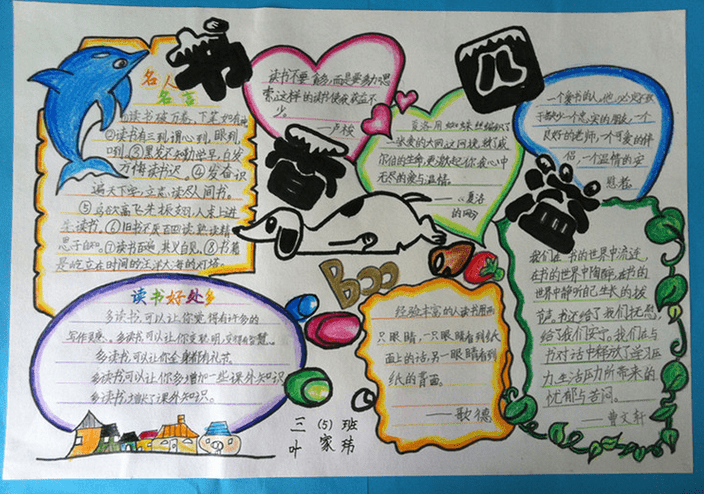 书
香
四
溢
名人
名言
①读书破万卷,下笔如有神
②读书有三到,谓心到,眼到,
口到。③黑发不知勤学早,白发
方悔读书迟。④发奋识
遍天下字,立志读尽人间书。
⑤鸟欲高飞先振翅,人求上进
先读书。⑥旧书不厌百回读,熟读精
思子自知。⑦读书百遍,其义自见。⑧书籍
是屹立在时间的汪洋大海的灯塔。
读书不要贪多,而是要多加思
索,这样的读书使我获益不
少。
——卢梭
夏洛用蜘蛛丝编织了
一张爱的大网,这网挽救了威
尔伯的生命,更激起你我心中
无尽的爱与温情。
——《夏洛
的网》
一个爱书的人,他必定不致
于缺少一个忠实的朋友,一个
良好的老师,一个可爱的伴
侣,一个温情的安
慰者。
我们在书的世界中流连,
在书的世界中陶醉,在书的
世界中静听自己生长的拔
节声。书还给了我们抚慰,
给了我们安宁。我们在与
书对话中释放了学习压
力,生活压力所带来的
忧郁与苦闷。
——曹文轩
Boo
读书好处多
多读书,可以让你觉得有许多的
写作灵感。多读书,可以让你变聪明,变得有智慧。
多读书,可以让你全身都有礼节。
多读书可以让你多增加一些课外知识
多读书,增长了课外知识。
经验丰富的人读书用两
只眼睛,一只眼睛看到纸
面上的话,另一眼睛看到
纸的背面。
——歌德
三(5)班
叶家玮